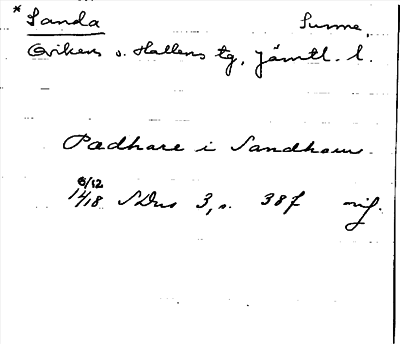 * Sanda Sunne,
Ovikens o. Hallens tg, Jämtl. l.
Padhare i Sandhom
6/12
1418 SDns 3, s. 38f